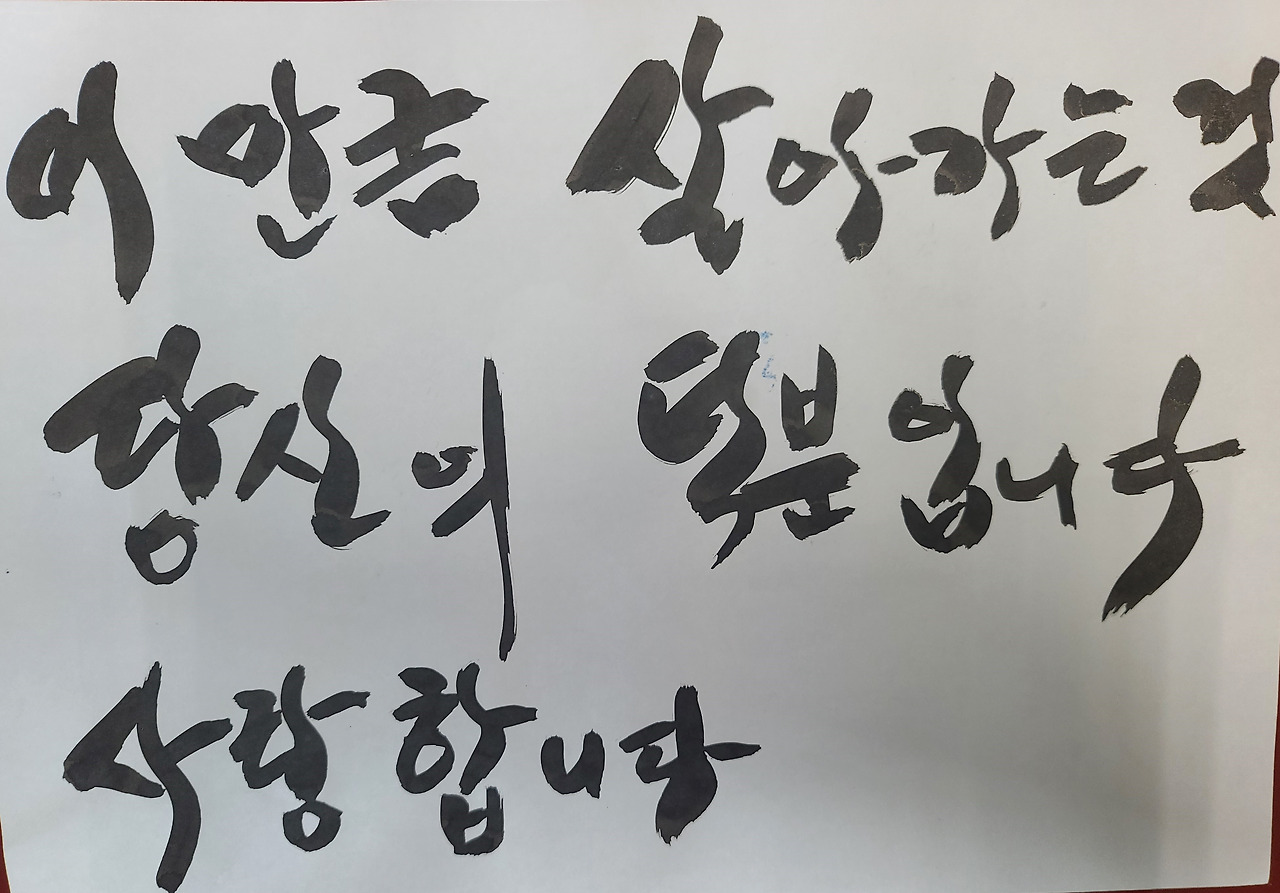 이 만큼 살아가는 것
당신의 덕분입니다
사랑합니다